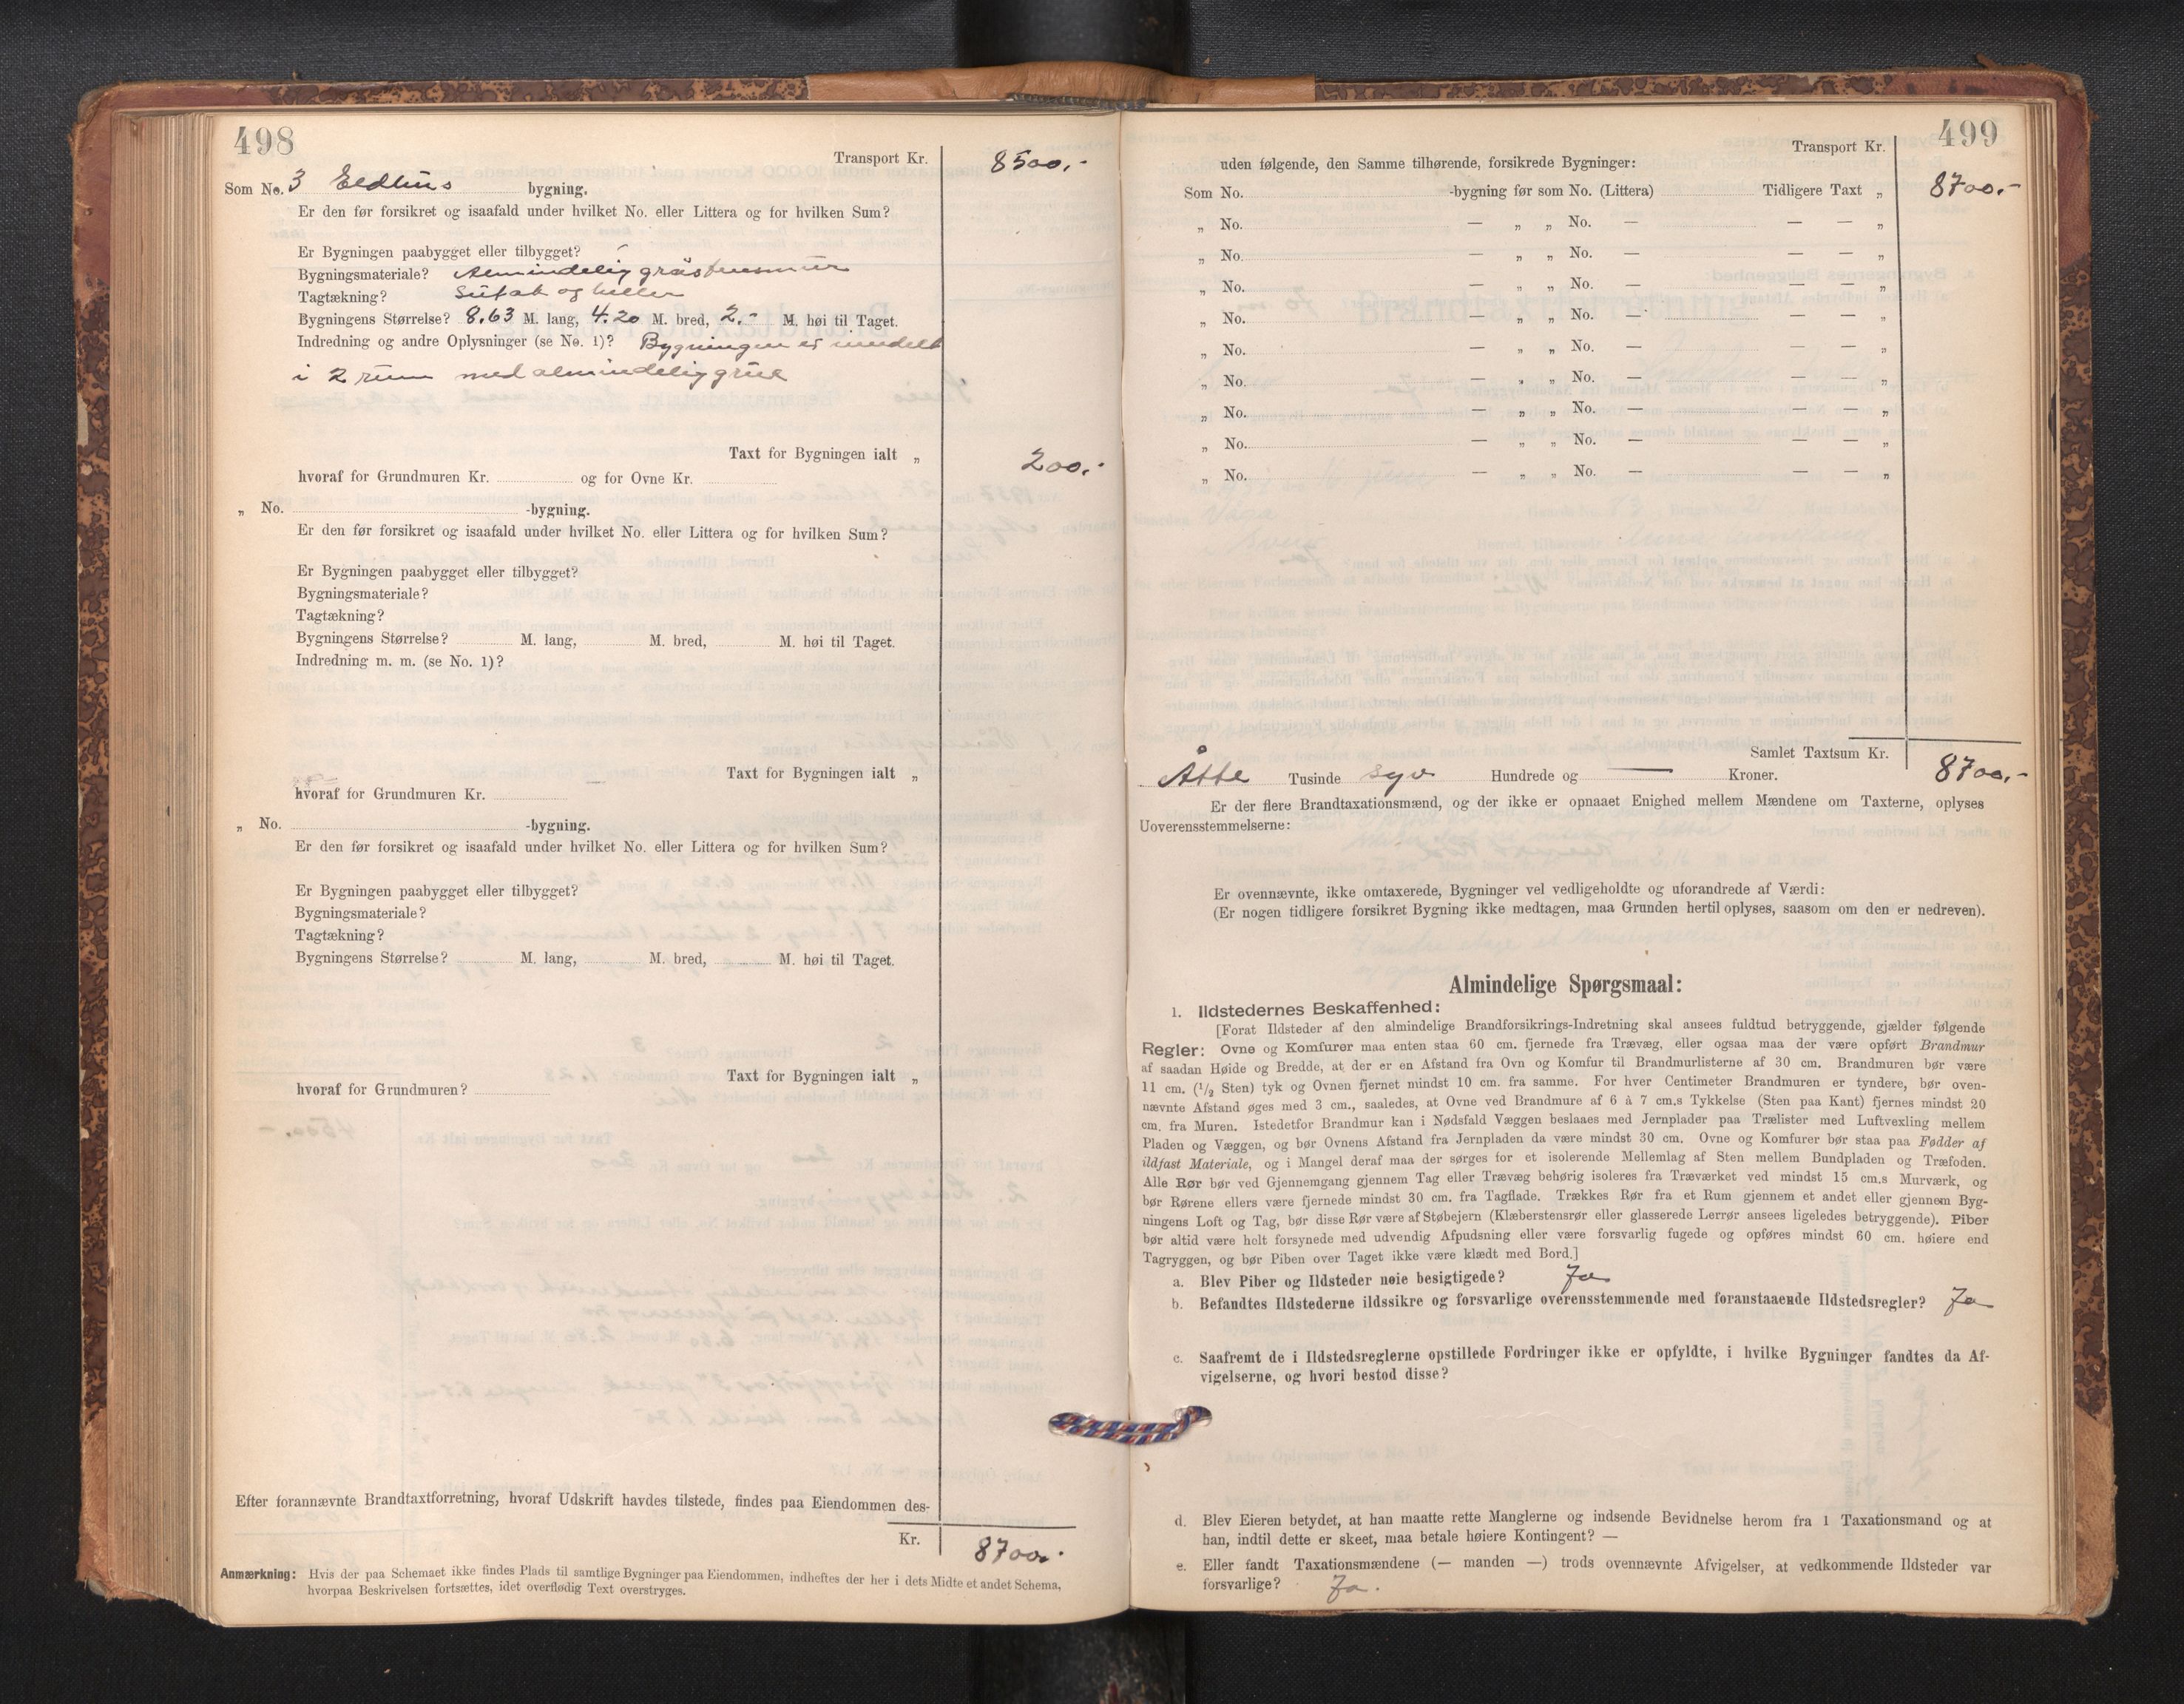 498
Transport Kr. 8500,-
Som No. 3 Eldhus bygning.
Er den før forsikret og isaafald under hvilket No. eller Littera og for hvilken Sum?
Er Bygningen paabygget eller tilbygget?
Bygningsmateriale? Almindelig gråstensmur
Tagtækning? Sutak og heller
Bygningens Størrelse? 8.63 M. lang, 4.20 M. bred, 2.- M. høi til Taget.
Indredning og andre Oplysninger (se No. 1)? Bygningen er inndelt
i 2 rum med almindelig grue
Taxt for Bygningen ialt „ 200.-
hvoraf for Grundmuren Kr. og for Ovne Kr.
„ No. -bygning.
Er den før forsikret og isaafald under hvilket No. eller Littera og for hvilken Sum?
Er Bygningen paabygget eller tilbygget?
Bygningsmateriale?
Tagtækning?
Bygningens Størrelse? M. lang, M. bred, M. høi til Taget.
Indredning m. m. (se No. 1)?
Taxt for Bygningen ialt „
hvoraf for Grundmuren Kr.
„ No. -bygning.
Er den før forsikret og isaafald under hvilket No. eller Littera og for hvilken Sum?
Er Bygningen paabygget eller tilbygget?
Bygningsmateriale?
Tagtækning?
Bygningens Størrelse? M. lang, M. bred, M. høi til Taget.
Taxt for Bygningen ialt „
hvoraf for Grundmuren?
Efter forannævnte Brandtaxtforretning, hvoraf Udskrift havdes tilstede, findes paa Eiendommen des-
Kr. 8700.-
Anmærkning: Hvis der paa Schemaet ikke findes Plads til samtlige Bygninger paa Eiendommen, indheftes der her i dets Midte et andet Schema,
hvorpaa Beskrivelsen fortsættes, idet overflødig Text overstryges.
499
Transport Kr.
uden følgende, den Samme tilhørende, forsikrede Bygninger:
Som No. -bygning før som No. (Littera) Tidligere Taxt „ 8700.-
„ No. — „ „ No. — — — „
„ No. — „ „ No. — — — „
„ No. — „ „ No. — — — „
„ No. — „ „ No. — — — „
„ No. — „ „ No. — — — „
„ No. — „ „ No. — — — „
„ No. — „ „ No. — — — „
„ No. — „ „ No. — — — „
„ No. — „ „ No. — — — „
Samlet Taxtsum Kr.
Åtte Tusinde syv Hundrede og — Kroner. 8700.-
Er der flere Brandtaxationsmænd, og der ikke er opnaaet Enighed mellem Mændene om Taxterne, oplyses
Uoverensstemmelserne:
Er ovennævnte, ikke omtaxerede, Bygninger vel vedligeholdte og uforandrede af Værdi:
(Er nogen tidligere forsikret Bygning ikke medtagen, maa Grunden hertil oplyses, saasom om den er nedreven).
Almindelige Spørgsmaal:
1. Ildstedernes Beskaffenhed:
[Forat Ildsteder af den almindelige Brandforsikrings-Indretning skal ansees fuldtud betryggende, gjælder følgende
Regler: Ovne og Komfurer maa enten staa 60 cm. fjernede fra Trævæg, eller ogsaa maa der være opført Brandmur
af saadan Høide og Bredde, at der er en Afstand fra Ovn og Komfur til Brandmurlisterne af 30 cm. Brandmuren bør være
11 cm. (1/2 Sten) tyk og Ovnen fjernet mindst 10 cm. fra samme. For hver Centimeter Brandmuren er tyndere, bør oven-
nævnte Afstand øges med 3 cm., saaledes, at Ovne ved Brandmure af 6 à 7 cm.s Tykkelse (Sten paa Kant) fjernes mindst 20
cm. fra Muren. Istedetfor Brandmur kan i Nødsfald Væggen beslaaes med Jernplader paa Trælister med Luftvexling mellem
Pladen og Væggen, og bør Ovnens Afstand fra Jernpladen da være mindst 30 cm. Ovne og Komfurer bør staa paa Fødder af
ildfast Materiale, og i Mangel deraf maa der sørges for et isolerende Mellemlag af Sten mellem Bundpladen og Træfoden.
Alle Rør bør ved Gjennemgang gjennem Tag eller Trævæg behørig isoleres fra Træværket ved mindst 15 cm.s Murværk, og
bør Rørene ellers være fjernede mindst 30 cm. fra Tagflade. Trækkes Rør fra et Rum gjennem et andet eller gjennem Byg-
ningens Loft og Tag, bør disse Rør være af Støbejern (Klæberstensrør eller glasserede Lerrør ansees ligeledes betryggende). Piber
bør altid være helt forsynede med udvendig Afpudsning eller være forsvarlig fugede og opføres mindst 60 cm. høiere end
Tagryggen, og bør Piben over Taget ikke være klædt med Bord.]
a. Blev Piber og Ildsteder nøie besigtigede? Ja
b. Befandtes Ildstederne ildssikre og forsvarlige overensstemmende med foranstaaende Ildstedsregler? Ja
c. Saafremt de i Ildstedsreglerne opstillede Fordringer ikke er opfyldte, i hvilke Bygninger fandtes da Af-
vigelserne, og hvori bestod disse?
d. Blev Eieren betydet, at han maatte rette Manglerne og indsende Bevidnelse herom fra 1 Taxationsmand og at
han, indtil dette er skeet, maa betale høiere Kontingent? —
e. Eller fandt Taxationsmændene (— manden —) trods ovennævnte Afvigelser, at vedkommende Ildsteder var
forsvarlige? Ja.